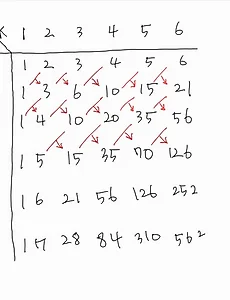 K 1 2 3 4 5 6
1 2 3 4 5 6
1 3 6 10 15 21
1 4 10 20 35 56
1 5 15 35 70 126
1 6 21 56 126 252
1 7 28 84 310 562